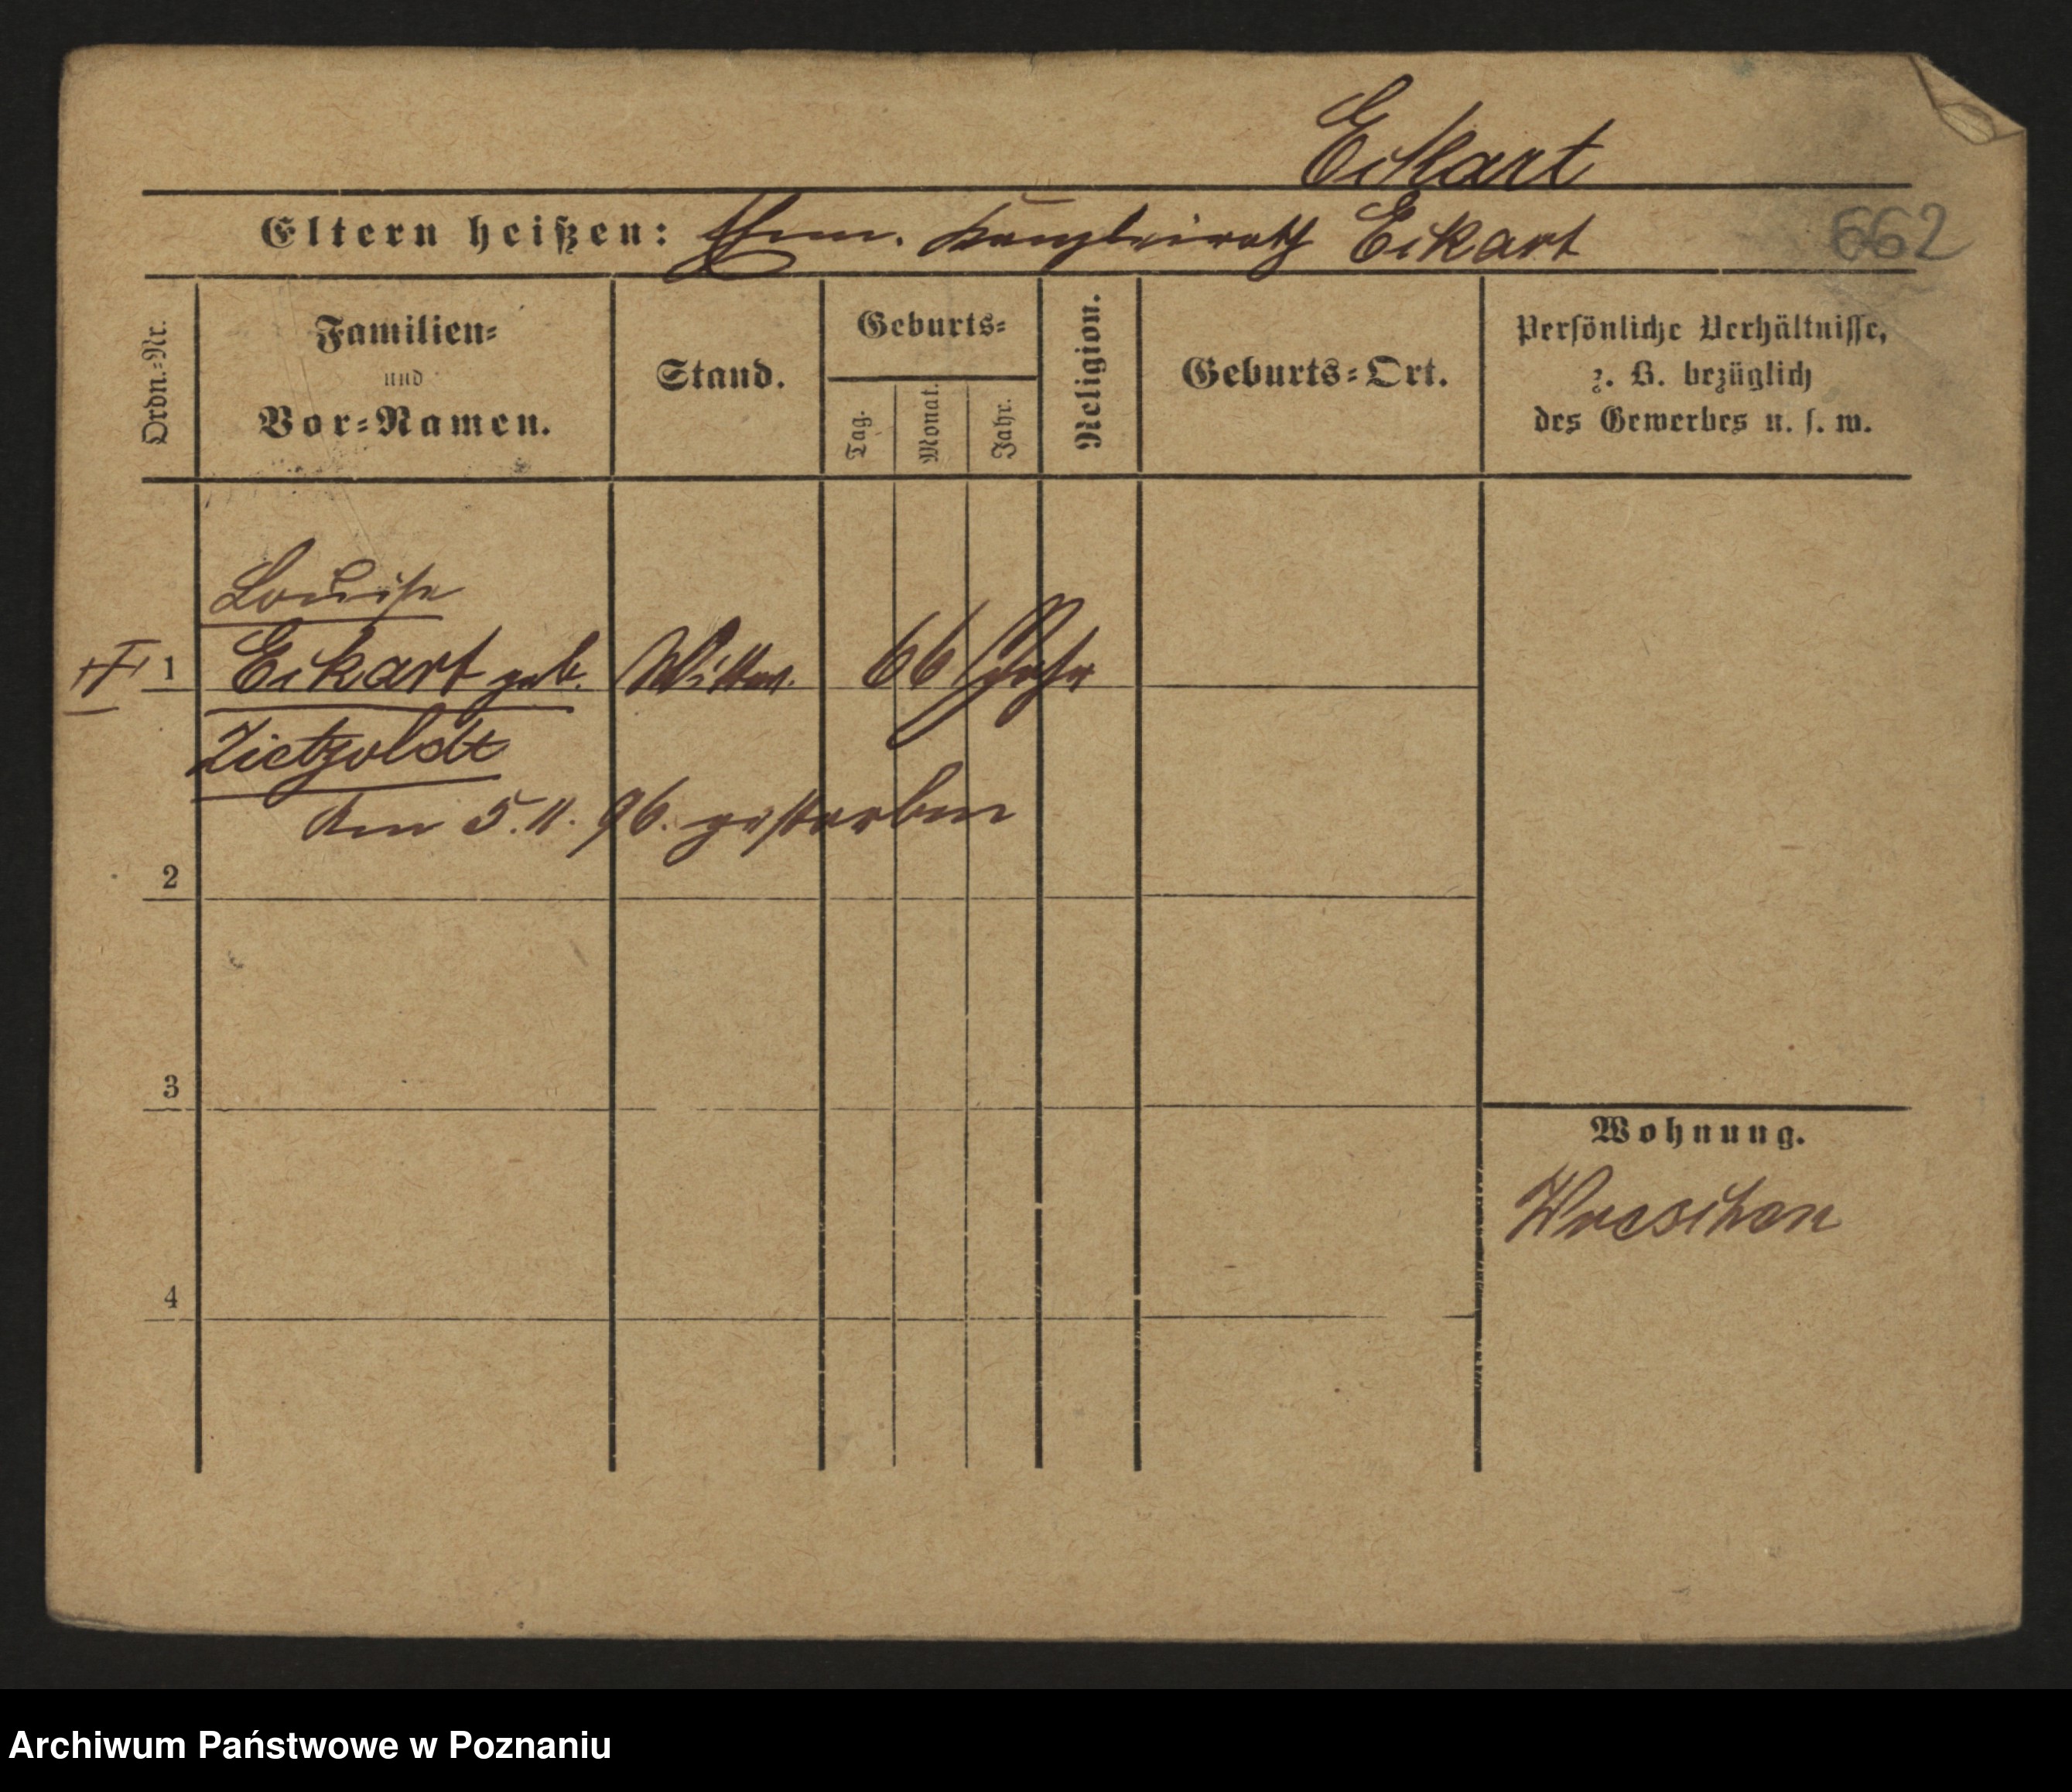 Eckart
Eltern heißen: Ehem. Kanzleirath Eckart
662
Ordn.-Nr.
Familien-
und
Vor-Namen.
Stand.
Geburts-
Tag.
Monat.
Jahr.
Religion.
Geburts-Ort.
Persönliche Verhältnisse,
z. B. bezüglich
des Gewerbes u. s. w.
Louise
1 Eckart geb. Wittwe. 66 Jahr
Zietzoldt
den 5.11.96. gestorben
2
3
Wohnung.
Wreschen
4
Archiwum Państwowe w Poznaniu